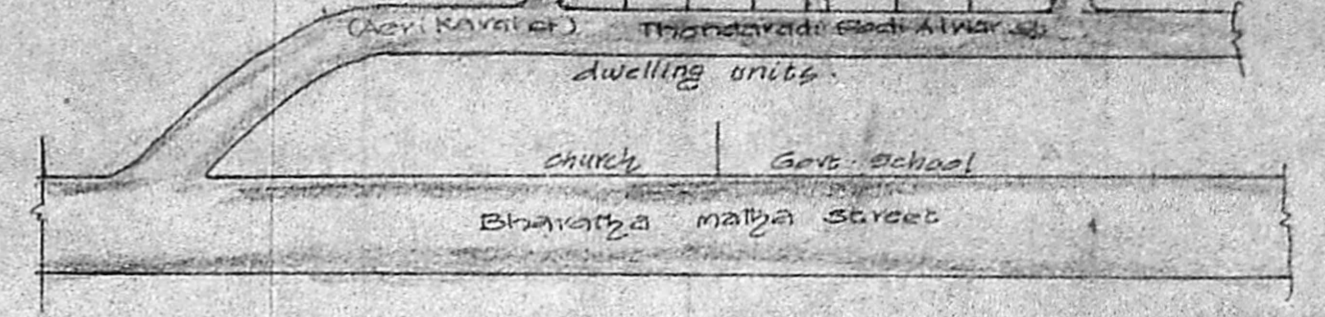 (Aeri Karai st) Thondaradi Podi Alwar st
dwelling units.
church Govt. School
Bharatha matha street